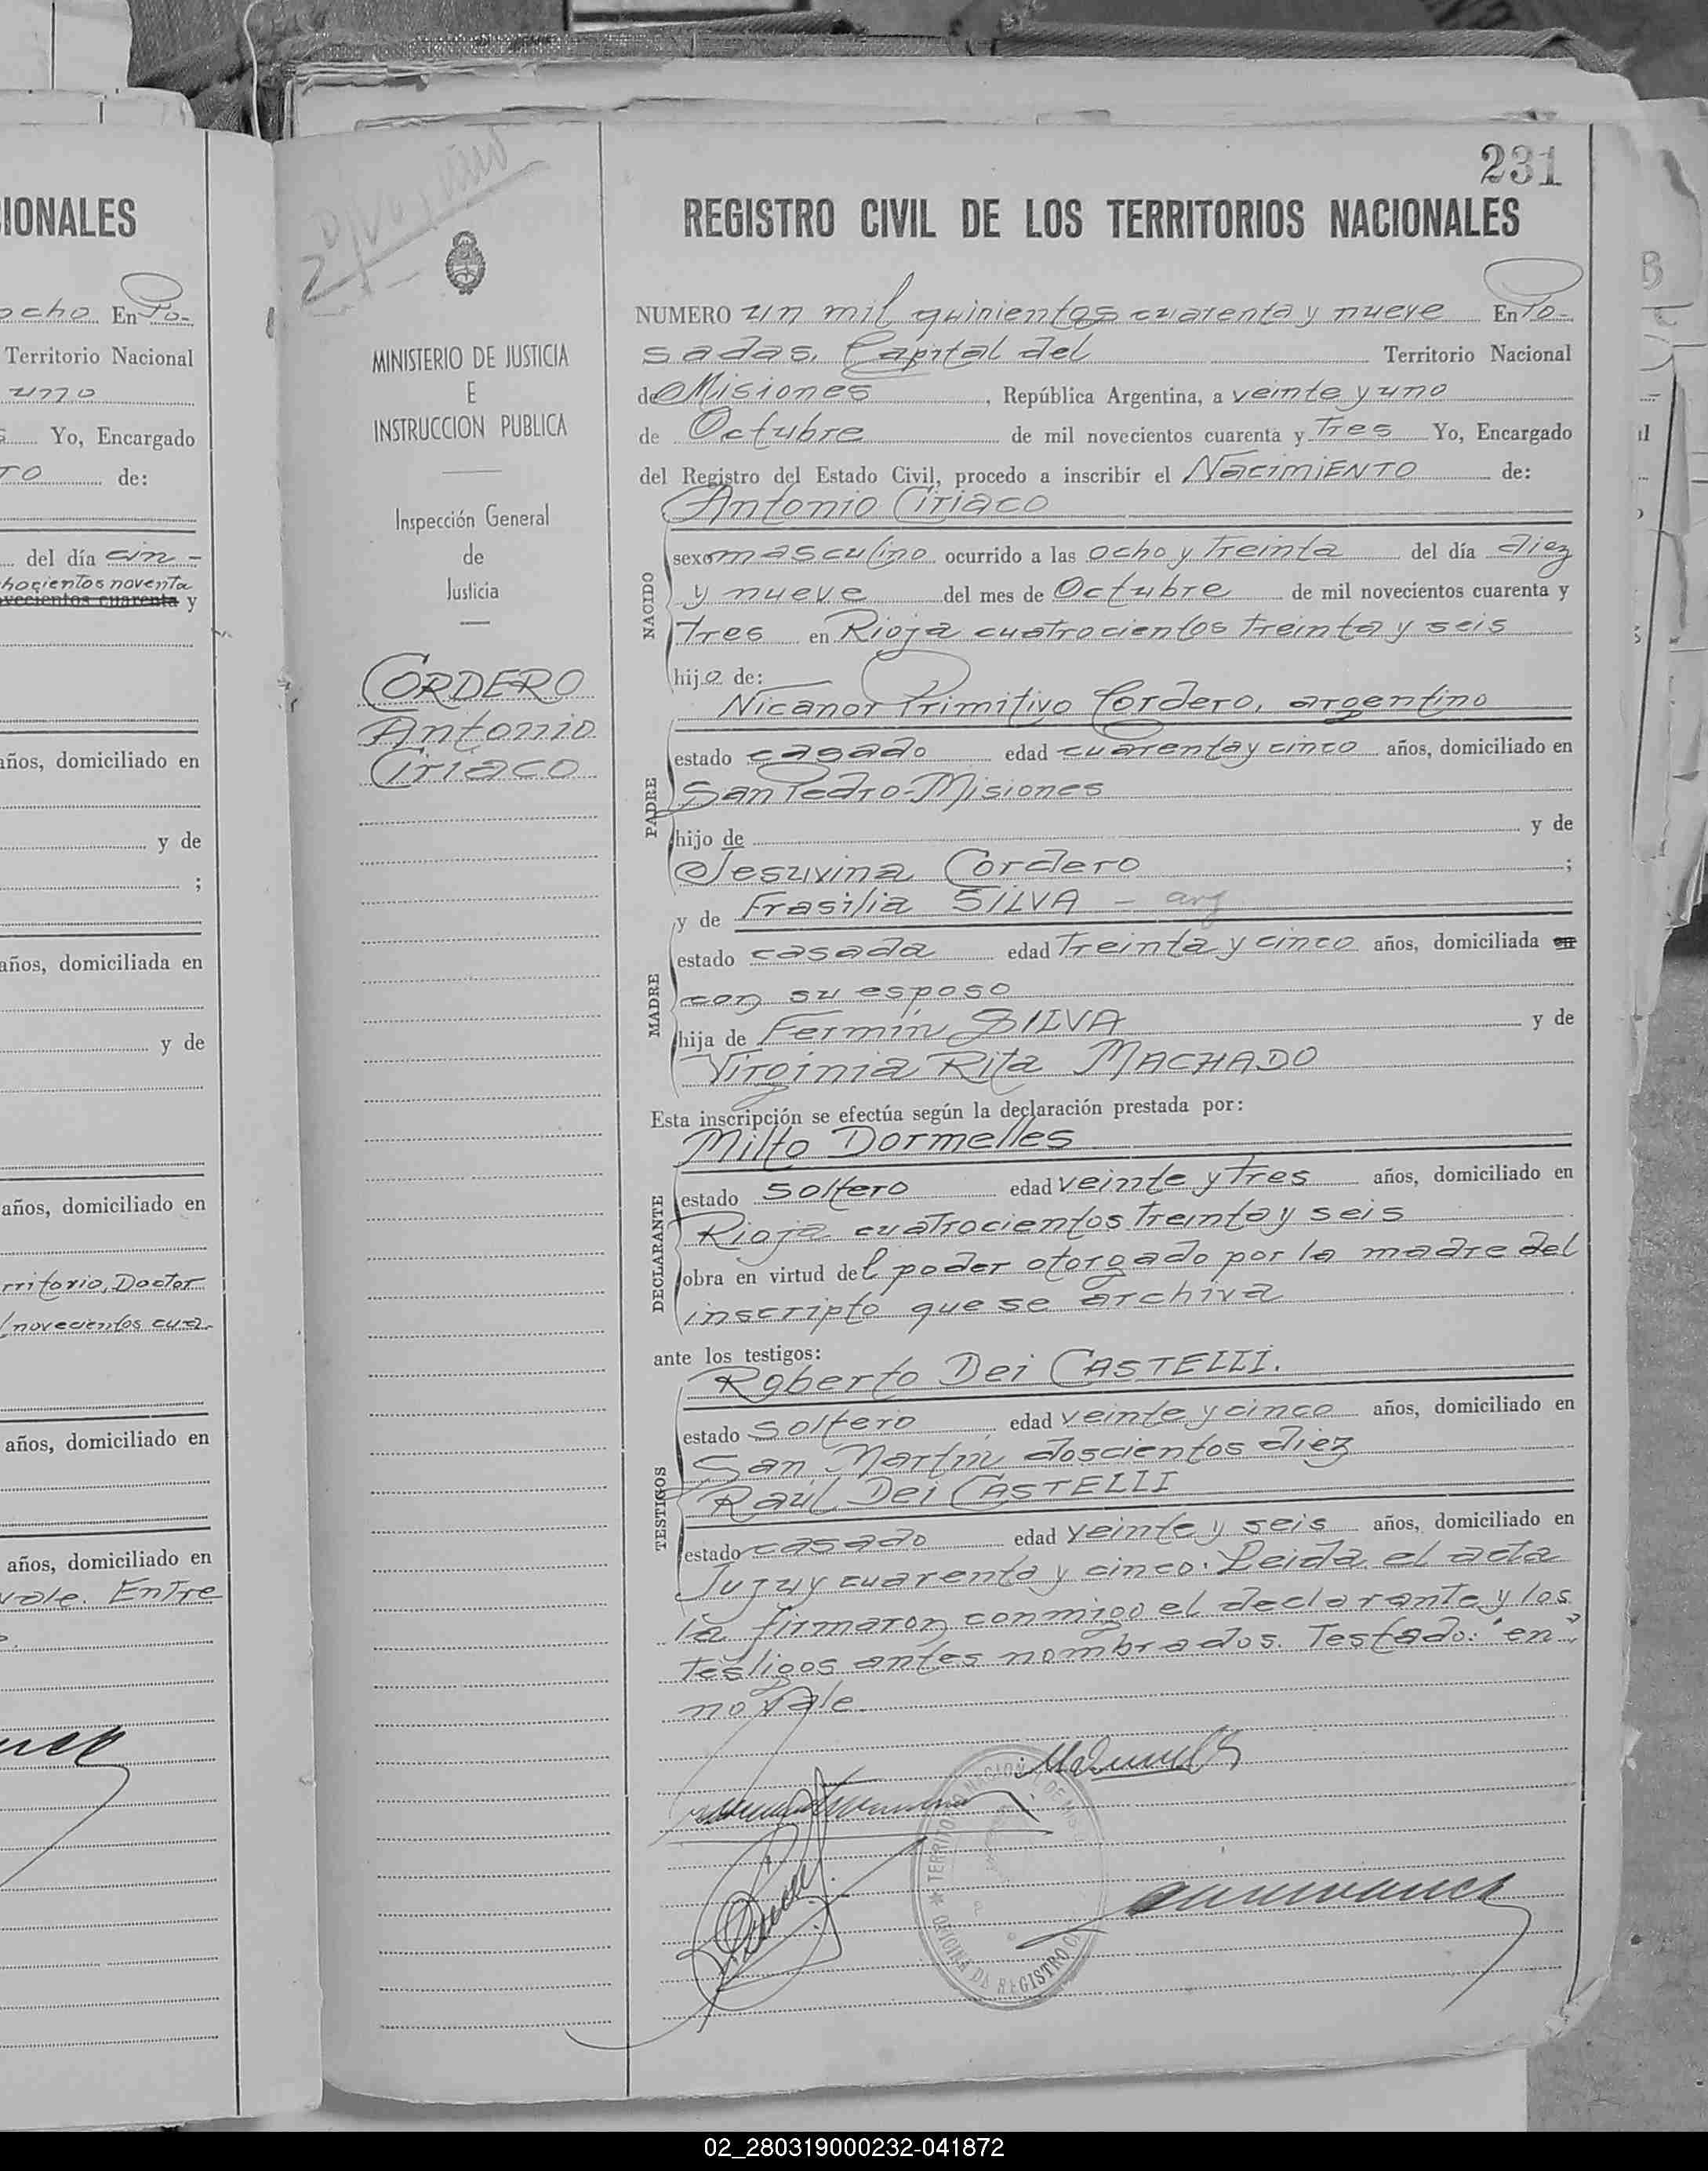 IONALES
ocho En Po-
Territorio Nacional
uno
Yo, Encargado
TO de:
del día cin-
hocientos noventa
vecientos cuarenta y
años, domiciliado en
y de
;
años, domiciliada en
y de
años, domiciliado en
rritorio, Doctor
novecientos cua-
años, domiciliado en
años, domiciliado en
vale. Entre
MINISTERIO DE JUSTICIA
E
INSTRUCCION PUBLICA
Inspección General
de
Justicia
CORDERO
Antonio
Ciriaco
231
REGISTRO CIVIL DE LOS TERRITORIOS NACIONALES
NUMERO un mil quinientos cuarenta y nueve En Po-
sadas, Capital del Territorio Nacional
de Misiones, República Argentina, a veinte y uno
de Octubre de mil novecientos cuarenta y Tres Yo, Encargado
del Registro del Estado Civil, procedo a inscribir el NACIMIENTO de:
Antonio Ciriaco
NACIDO
sexo masculino ocurrido a las ocho y treinta del día diez
y nueve del mes de Octubre de mil novecientos cuarenta y
tres en Rioja cuatrocientos treinta y seis
hijo de:
Nicanor Primitivo Cordero, argentino
PADRE
estado casado edad cuarenta y cinco años, domiciliado en
San Pedro-Misiones
hijo de y de
Jesuvina Cordero ;
y de Frasilia SILVA - arg
MADRE
estado casada edad Treinta y cinco años, domiciliada en
con su esposo
hija de Fermín SILVA y de
Virginia Rita MACHADO
Esta inscripción se efectúa según la declaración prestada por:
Milto Dormelles
DECLARANTE
estado soltero edad veinte y Tres años, domiciliado en
Rioja cuatrocientos treinta y seis
obra en virtud del poder otorgado por la madre del
inscripto que se archiva
ante los testigos:
Roberto Dei CASTELLI.
TESTIGOS
estado soltero edad veinte y cinco años, domiciliado en
San Martín doscientos diez
Raúl Dei CASTELLI
estado casado edad veinte y seis años, domiciliado en
Jujuy cuarenta y cinco. Leida el acta
la firmaron conmigo el declarante y los
testigos antes nombrados. Testado: "en"
no vale.
TERRITORIO NACIONAL DE
OFICINA DE REGISTRO
02_280319000232-041872